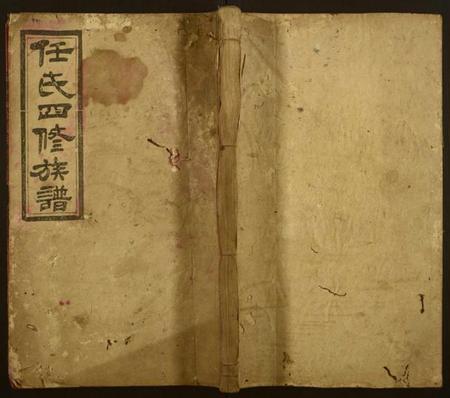 任氏四修族譜